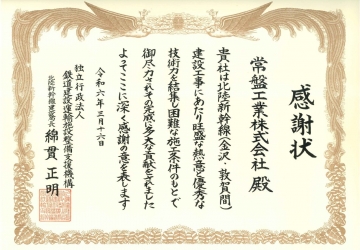 感謝状
常盤工業株式会社 殿
貴社は北陸新幹線(金沢・敦賀間)
建設工事にあたり旺盛な熱意と優秀な
技術力を結集し困難な施工条件のもとで
御尽力されその完成に多大な貢献をされました
よってここに深く感謝の意を表します
令和六年三月十六日
独立行政法人
鉄道建設・運輸施設整備支援機構
北陸新幹線建設局長 綿貫正明